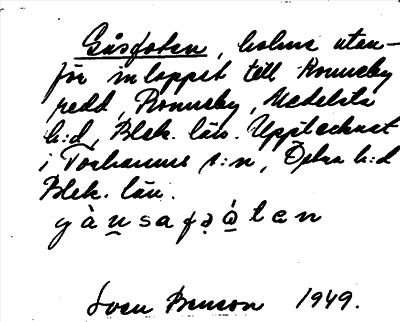 Gåsfoten, holme utan-
för inloppet till Ronneby
redd, Ronneby, Medelsta
h:d, Blek. län. Upptecknat
i Torhamns s:n, Östra h:d
Blek. län.
gàu̲safo̲ten
Sven Benson 1949.